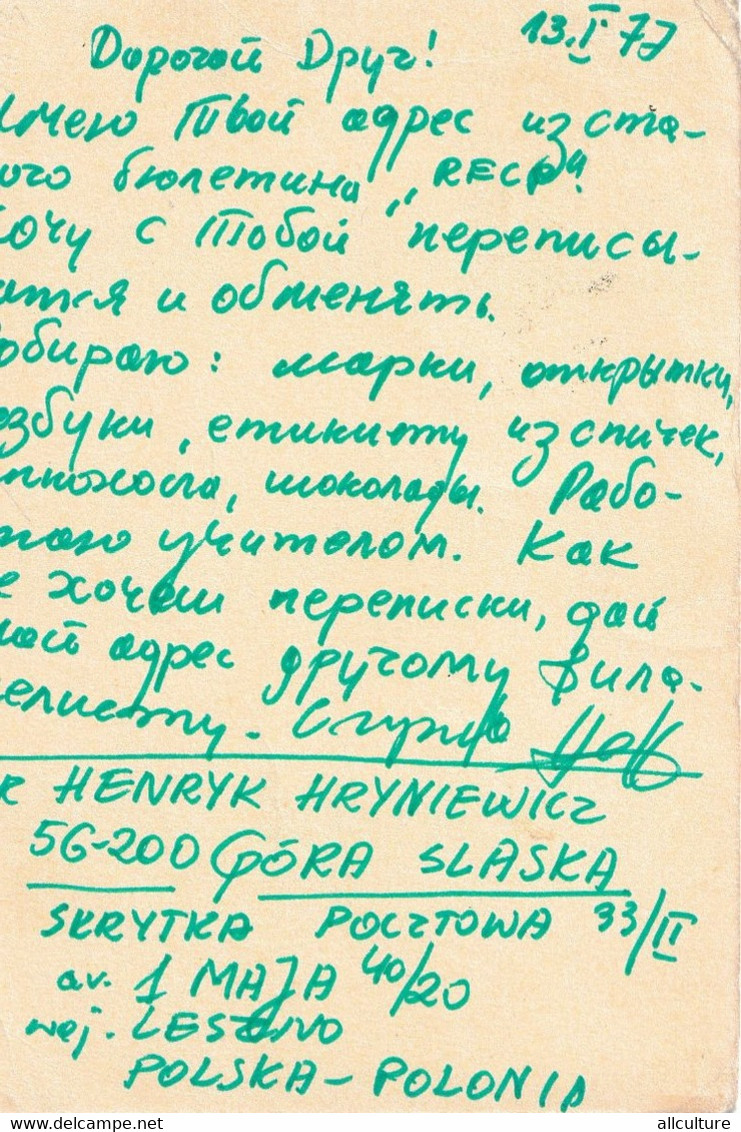 13.I 77
Дорогой Друг!
имею Твой адрес из ста-
ого бюлетина „RECP".
Хочу с Тобой переписы-
атся и обменять.
обираю: марки, открытки,
азбуки, етикиту из спичек,
шоколады. Рабо-
таю учителом. Как
е хочеш переписки, дай
мой адрес другому фила-
телисту.
HENRYK HRYNIEWICZ
56-200 GÓRA SLASKA
SKRYTKA POCZTOWA 33/II
av. 1 MAJA 40/20
woj. LESZNO
POLSKA - POLONIA
allculture